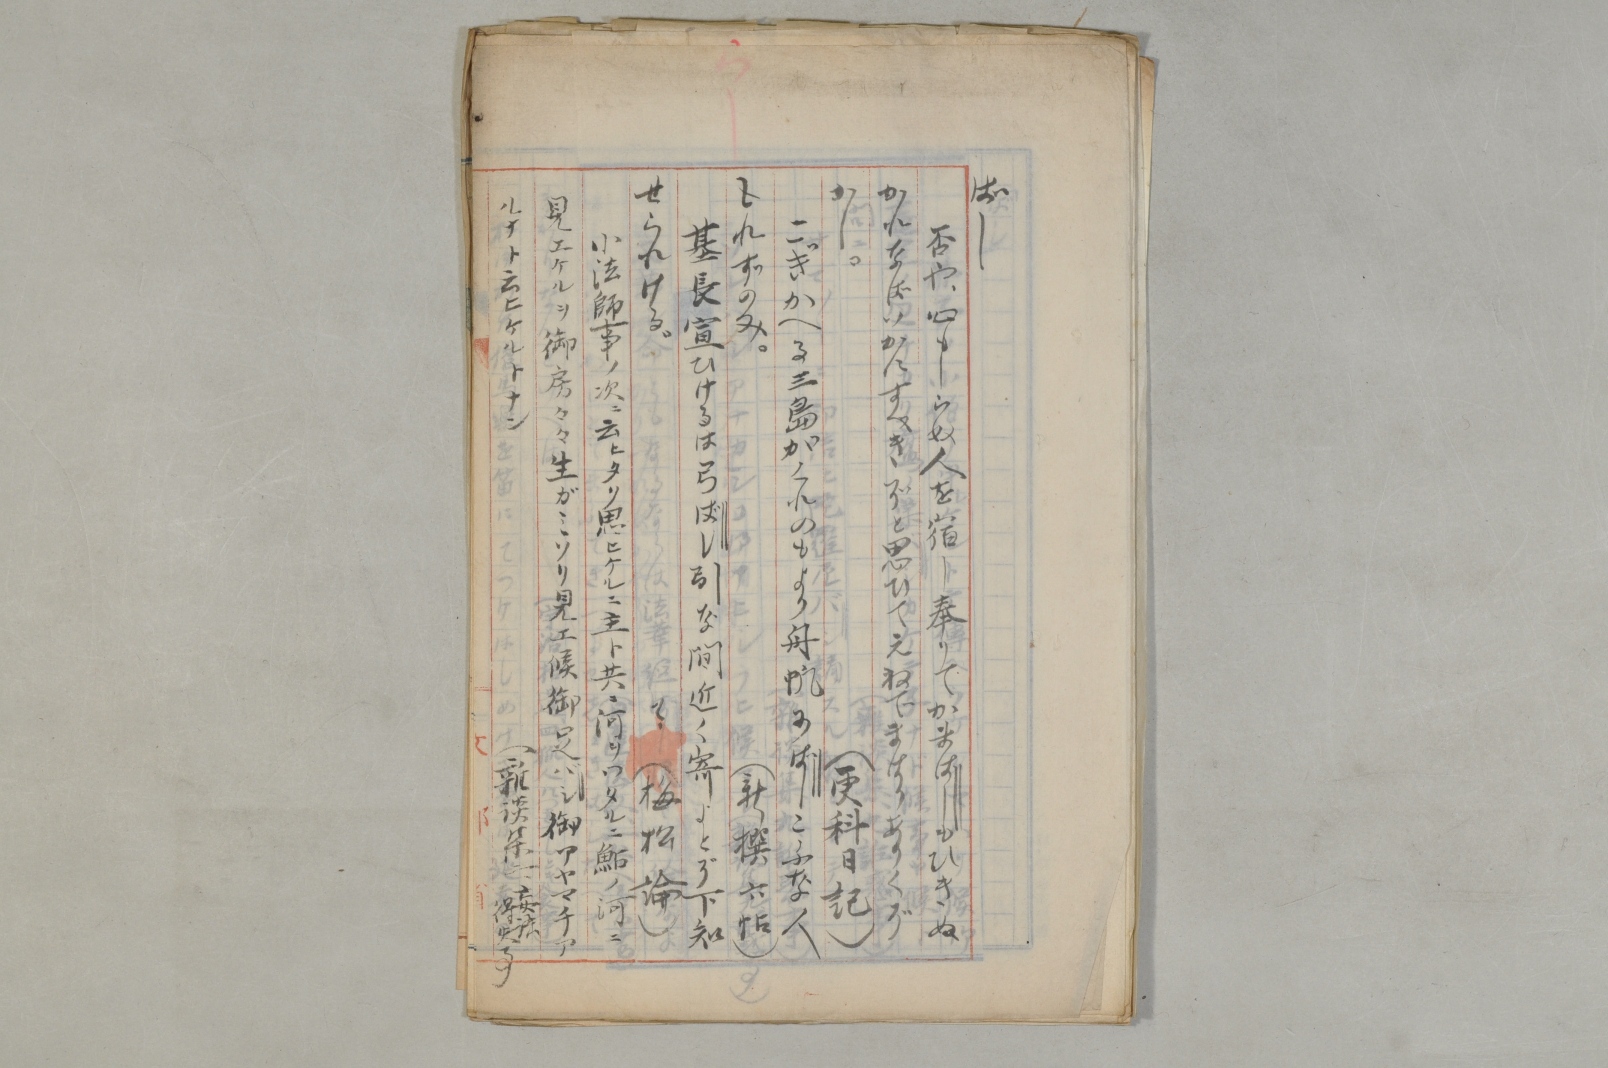 ばし
否や、心もしらぬ人を宿し奉りて、かまばしもひきぬ
かれなばいかにすべきぞと思ひてえねでまはりありくぞ
かし。(更科日記)
こぎかへる三島がくれのもより舟帆をばしこふな人
とれずのみ。(新撰六帖)
基長宣ひけるは弓ばし引な間近く寄よとぞ下知
せられける。(梅松論)
小法師事ノ次ニ云ヒタリ思ヒケルニ主ト共ニ河ヲワタルニ鮎ノ河ニ
見エケルヲ御房々々生ガミソリ見エ候御足バシ御アヤマチア
ルナト云ヒケルトナン(雜談集二妄語得失事)
文部省